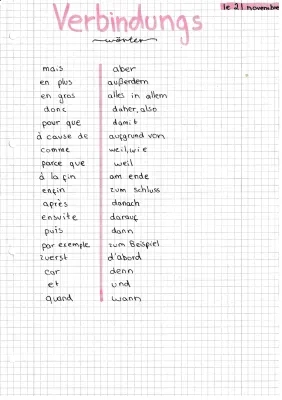 le 21 novembre
Verbindungs
wörter
mais aber
en plus außerdem
en gros alles in allem
donc daher, also
pour que damit
à cause de aufgrund von
comme weil, wie
parce que weil
à la fin am ende
enfin zum schluss
après danach
ensuite darauf
puis dann
par exemple zum Beispiel
zuerst d'abord
car denn
et und
quand wann